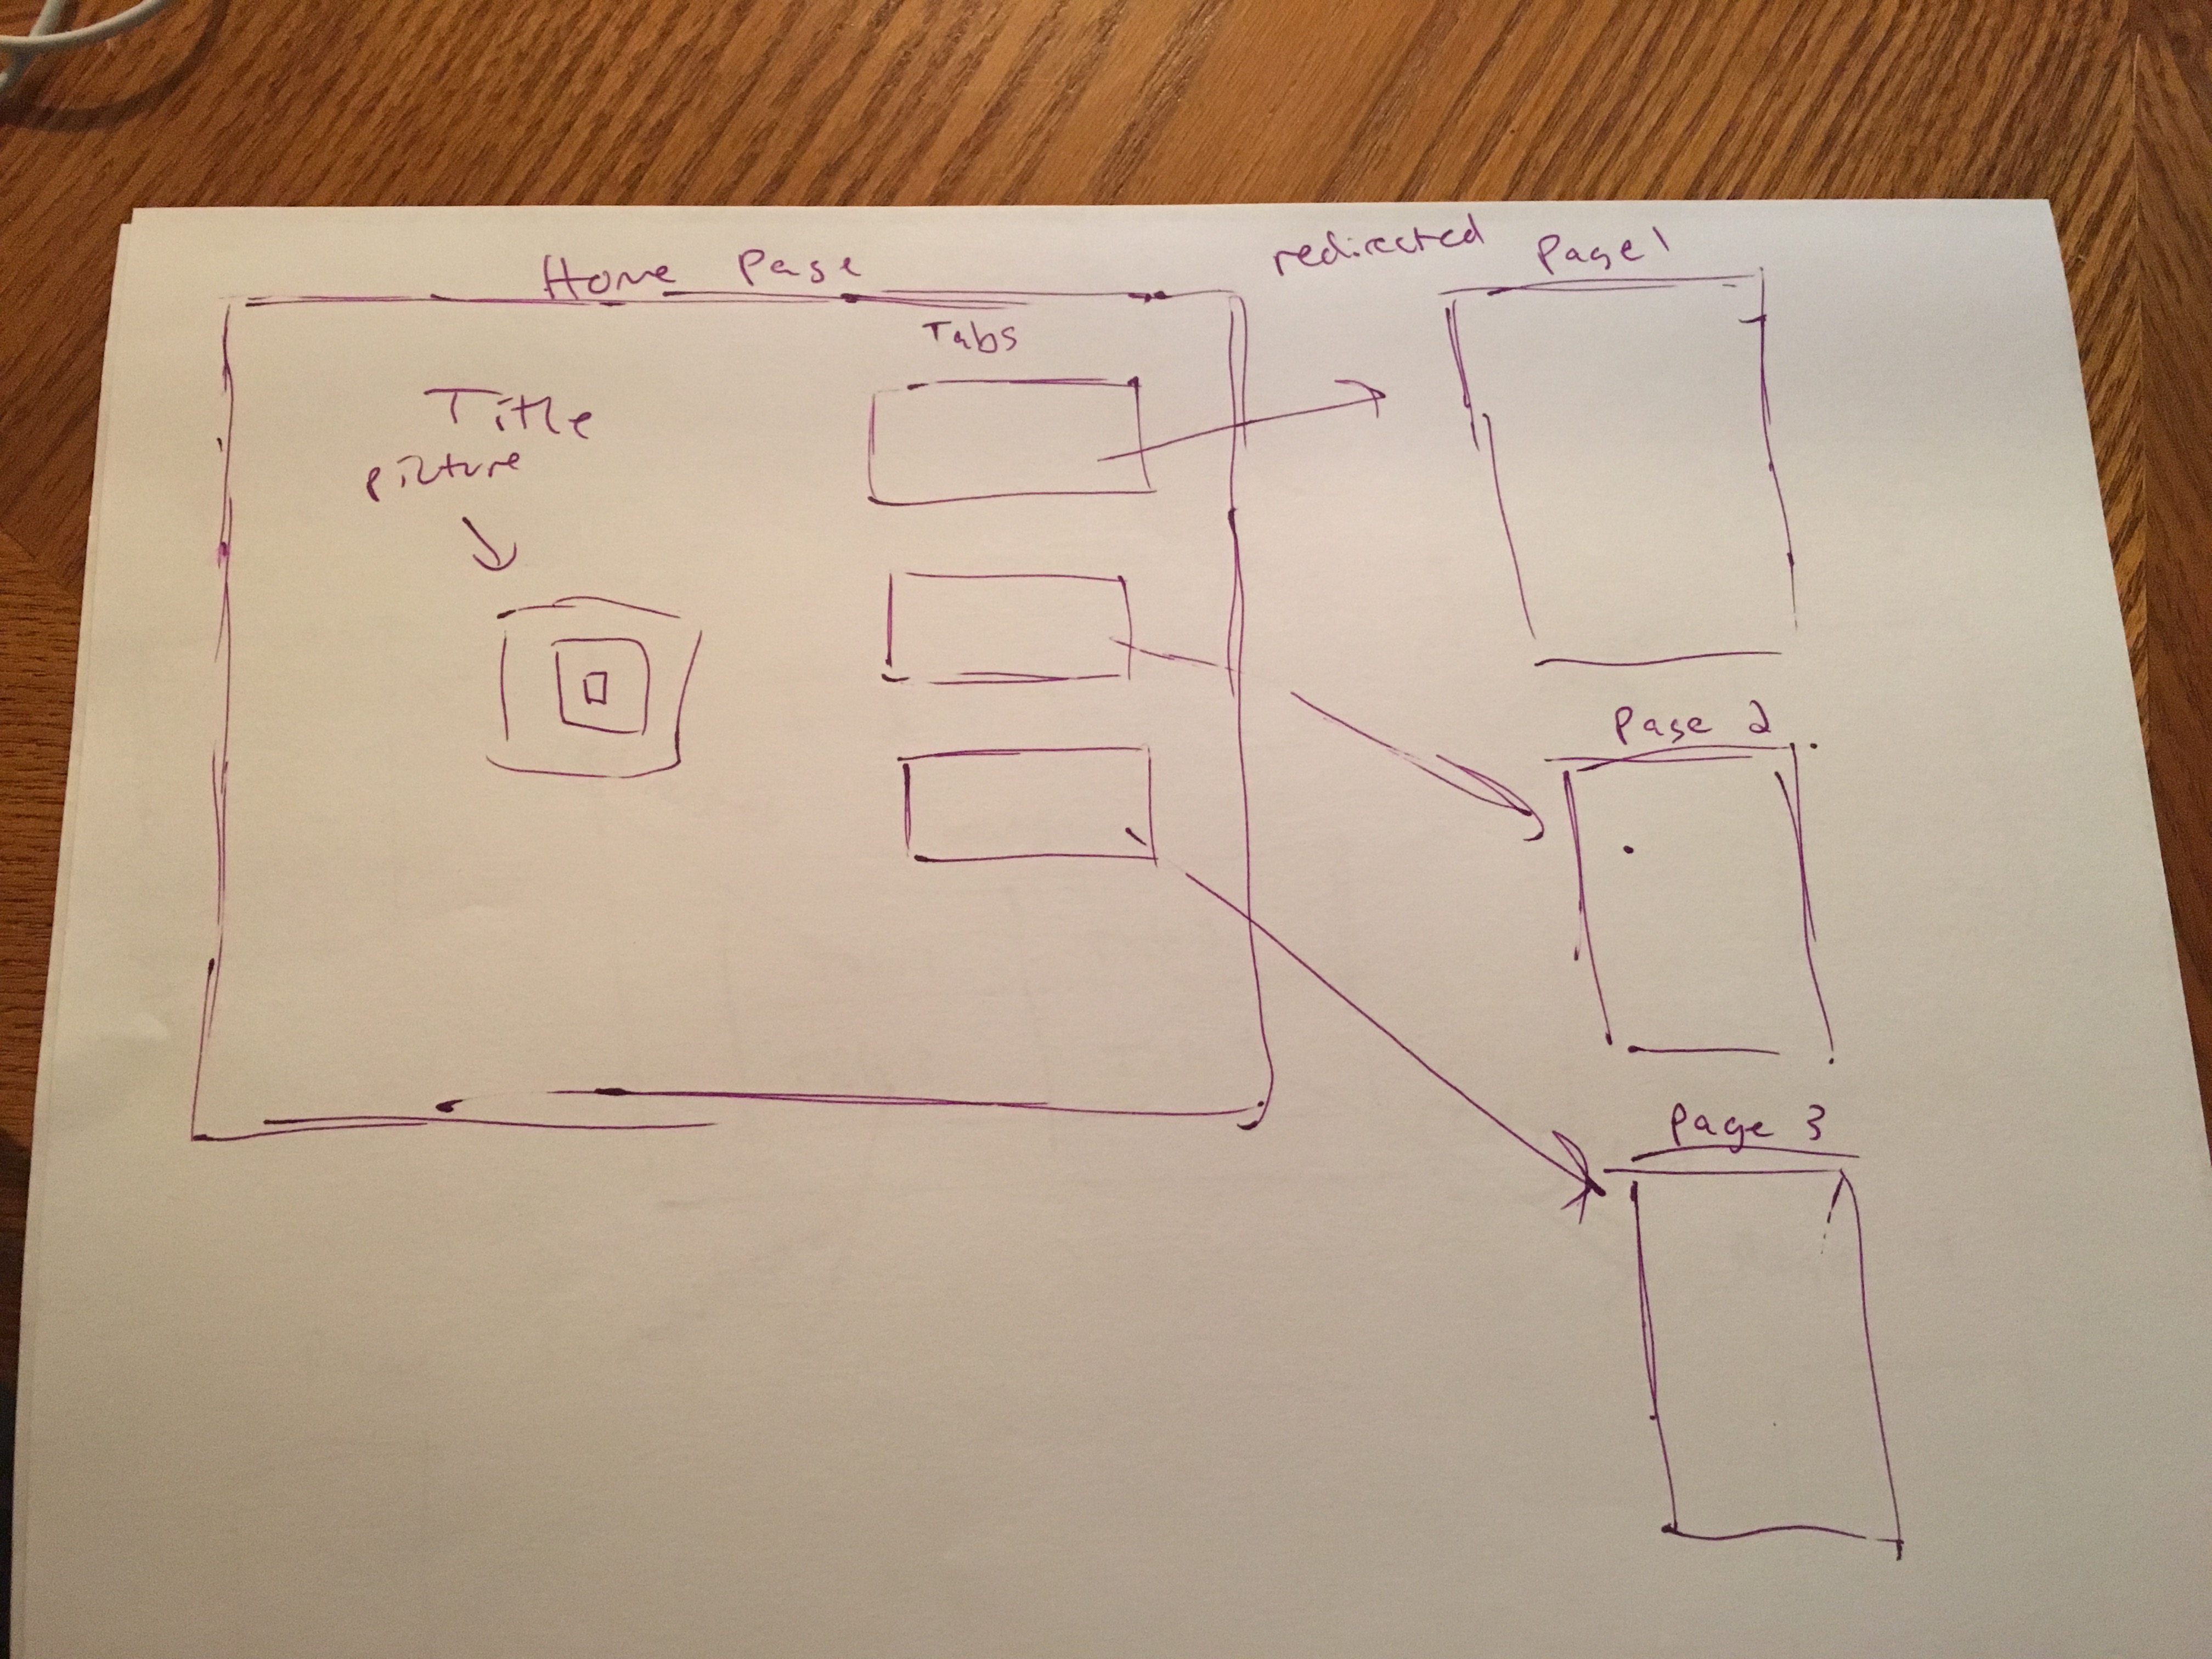 Home Page
Tabs
Title
picture
redirected Page 1
Page 2
Page 3